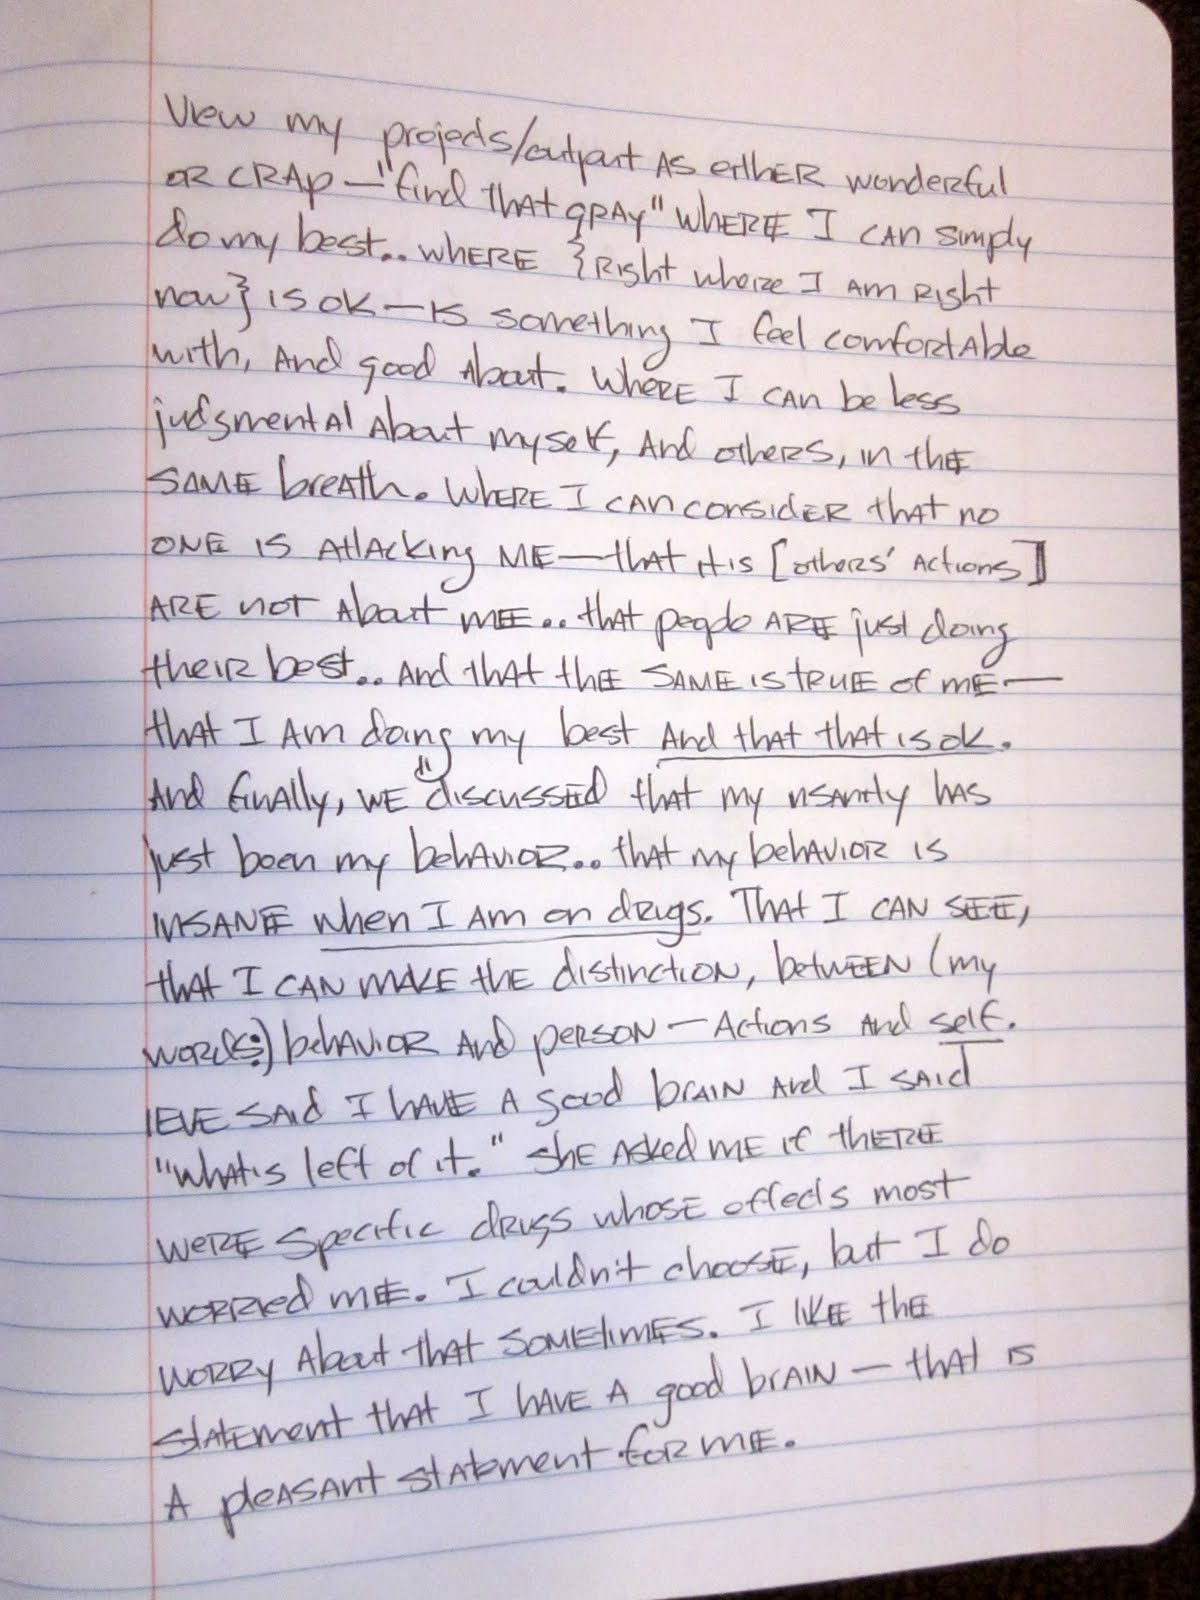 View my projects/output AS eitHER wonderful
OR CRAP — "find THAT gRAy" WHERE I CAN simply
do my best.. WHERE {Right where I AM Right
now} is ok — is something I feel comfortAble
with, And good About. WHERE I CAN be less
judgmentAl About myself, And others, in thE
SAME breAth. WHERE I CAN consider that no
ONE is AttAcking ME — thAt it is [others' Actions]
ARE not About ME.. thAt people ARE just doing
their best.. And thAt thE SAME is tRUE of ME —
thAt I AM doing my best And that that is ok.
And finAlly, WE discussed thAt my insAnity hAs
just been my behAvior.. thAt my behAvior is
INSANE when I AM on drugs. THAt I CAN SEE,
thAt I CAN MAKE thE distinction, betwEEN (my
words:) behAvior And person — Actions And self.
EVE SAid I hAVE A good brAIN And I SAid
"whAt's left of it." ShE Asked ME if thERE
WERE specific drugs whose effects most
worried ME. I couldn't choosE, but I do
worry About thAt somEtimES. I likE thE
stAtement thAt I hAVE A good brAIN — thAt is
A pleAsAnt stAtement for ME.